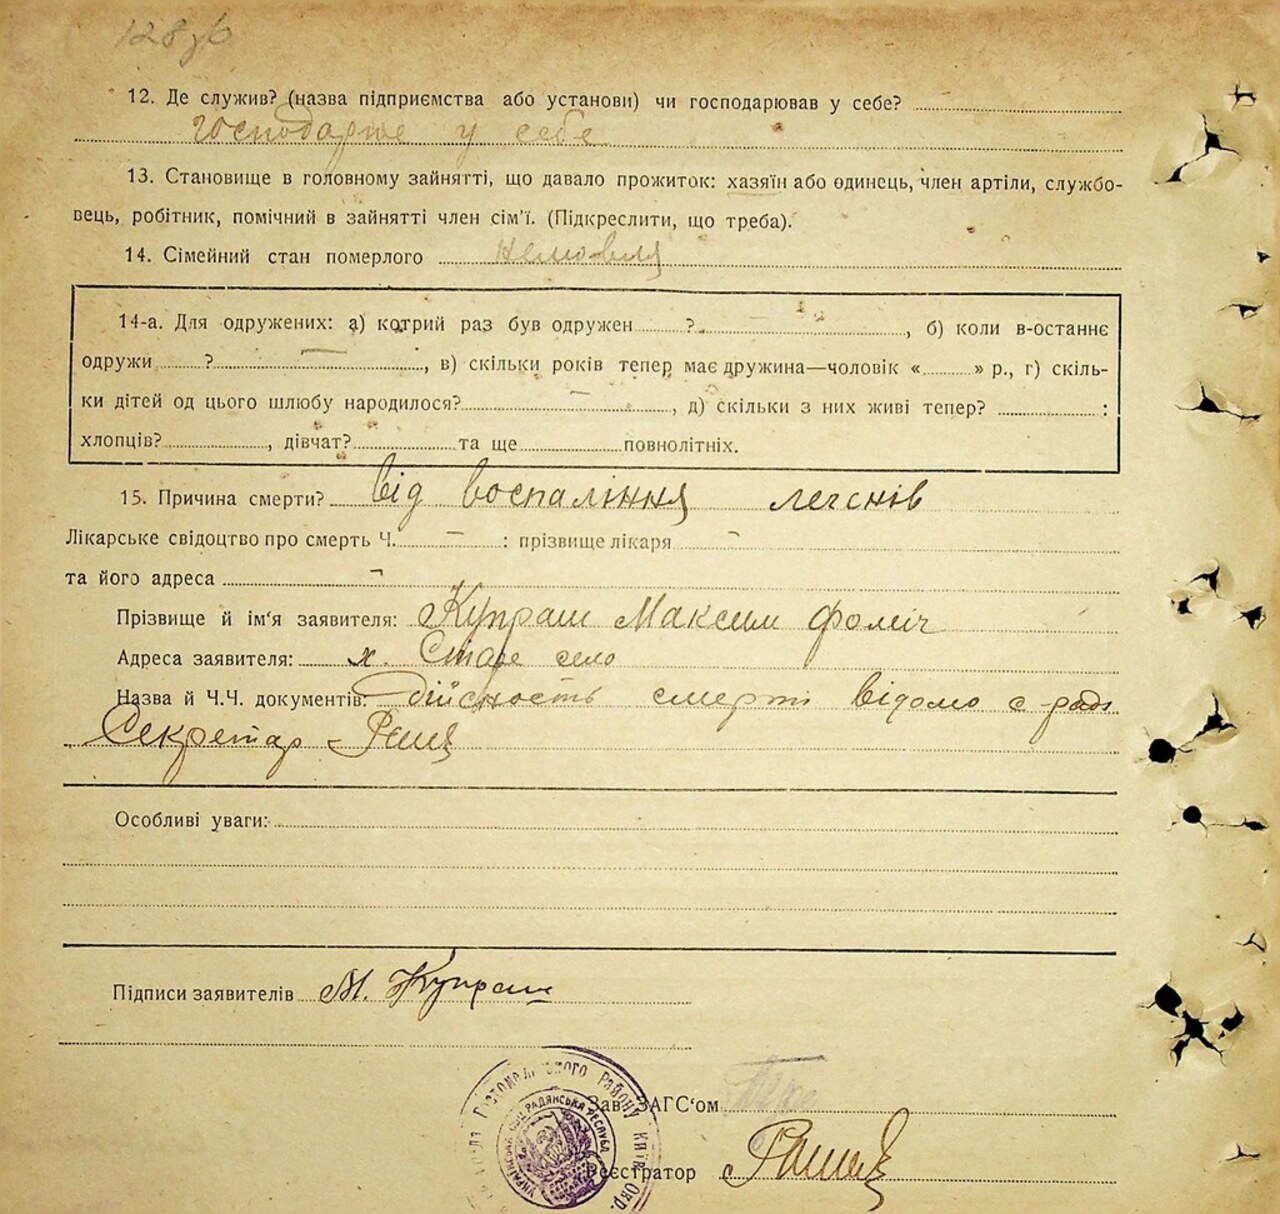 128 зв
12. Де служив? (назва підприємства або установи) чи господарював у себе?
господарює у себе
13. Становище в головному зайнятті, що давало прожиток: хазяїн або одинець, член артіли, службо-
вець, робітник, помічний в зайнятті член сім'ї. (Підкреслити, що треба).
14. Сімейний стан померлого
14-а. Для одружених: а) котрий раз був одружен ? , б) коли в-останнє
одружи ? , в) скільки років тепер має дружина—чоловік « » р., г) скіль-
ки дітей од цього шлюбу народилося? , д) скільки з них живі тепер? :
хлопців? , дівчат? та ще повнолітніх.
15. Причина смерти? Від воспаління легенів
Лікарське свідоцтво про смерть Ч. – : прізвище лікаря –
та його адреса –
Прізвище й ім'я заявителя: Купраш Максим Фоміч
Адреса заявителя: х. Старе село
Назва й Ч.Ч. документів: Дійсность смерті відомо с-раді
Секретар
Особливі уваги:
Підписи заявителів М. Купраш
Гостомельського Району Київ Окр.
УКРАЇНСЬКА СОЦ РАДЯНСЬКА РЕСПУБ
Зав. ЗАГС'ом
Реєстратор